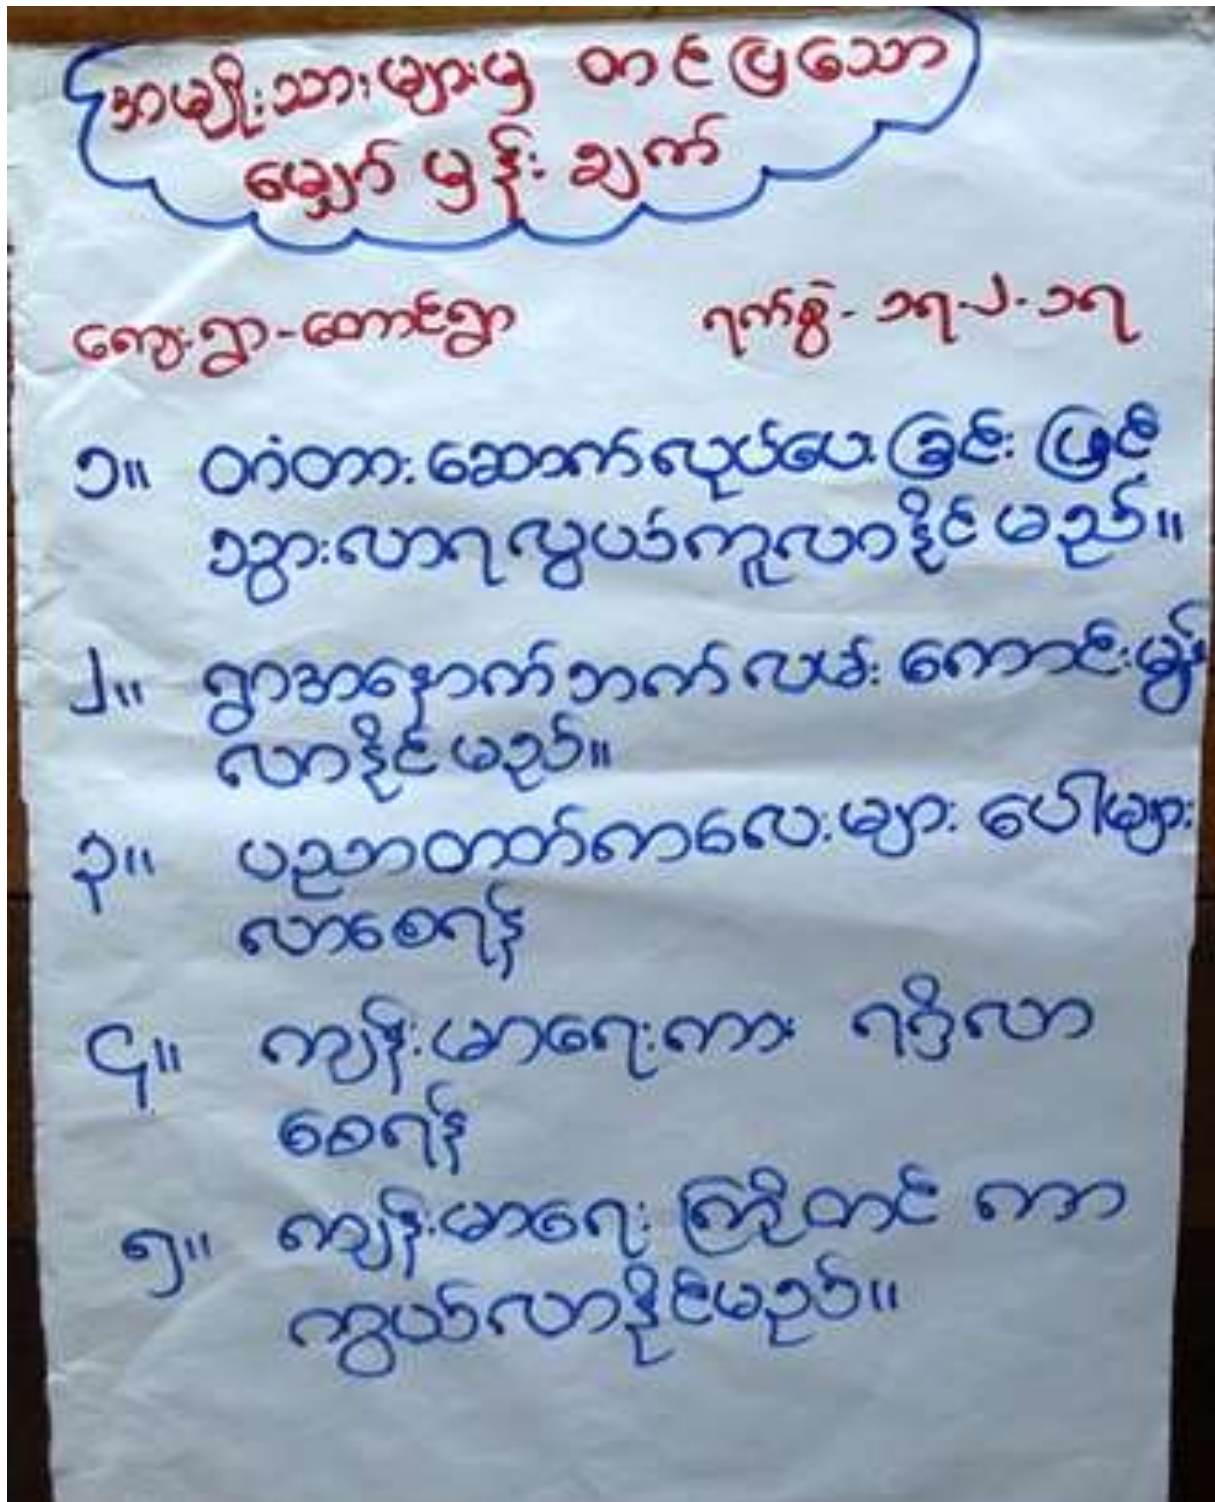 အမျိုးသားများမှ တင်ပြသော
မျှော်မှန်းချက်
ကျေးရွာ-တောင်ရွာ ရက်စွဲ- ၁၇-၂-၁၇
၁။ တံတားဆောက်လုပ်ပေးခြင်းဖြင့်
သွားလာရလွယ်ကူလာနိုင်မည်။
၂။ ရွာအနောက်ဘက်လမ်းကောင်းမွန်
လာနိုင်မည်။
၃။ ပညာတတ်ကလေးများ ပေါများ
လာစေရန်
၄။ ကျန်းမာရေးကား ရရှိလာ
စေရန်
၅။ ကျန်းမာရေး ကြိုတင် ကာ
ကွယ်လာနိုင်မည်။